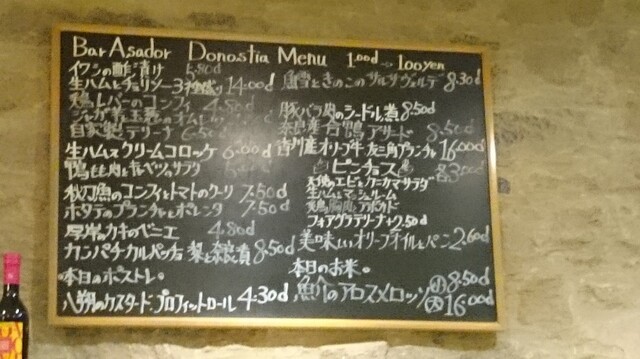 Bar Asador Donostia Menu 1.00d→100yen
イワシの酢漬け 5.80d
生ハムとチョリソー3種盛り 14.00d
鶏レバーのコンフィ 4.80d
ジャガ芋と玉葱のオムレツ
自家製テリーナ 6.50d
生ハムとクリームコロッケ 6.00d
鴨もも肉とキャベツのサラダ
秋刀魚のコンフィとトマトのクーリ 7.50d
ホタテのプランチャとポレンタ 7.50d
厚岸カキのベニエ 4.80d
カンパチカルパッチョ 梨と奈良漬 8.50d
本日のポストレ。
八朔のカスタード・プロフィットロール 4.30d
ときのこのサルサヴェルデ 8.30d
豚バラ肉のシードル煮 8.50d
奈良産合鴨アサード 8.50d
産オリーブ牛友三角プランチャ 16.00d
ピンチョス 8.30d
天使のエビとカニカマサラダ
生ハムとマシュルーム
鶏胸肉とアボカド
フォアグラテリーナ+2.50d
美味しいオリーブオイルとパン 2.60d
本日のお米。
魚介のアロスメロッソ 小 8.50d
大 16.00d